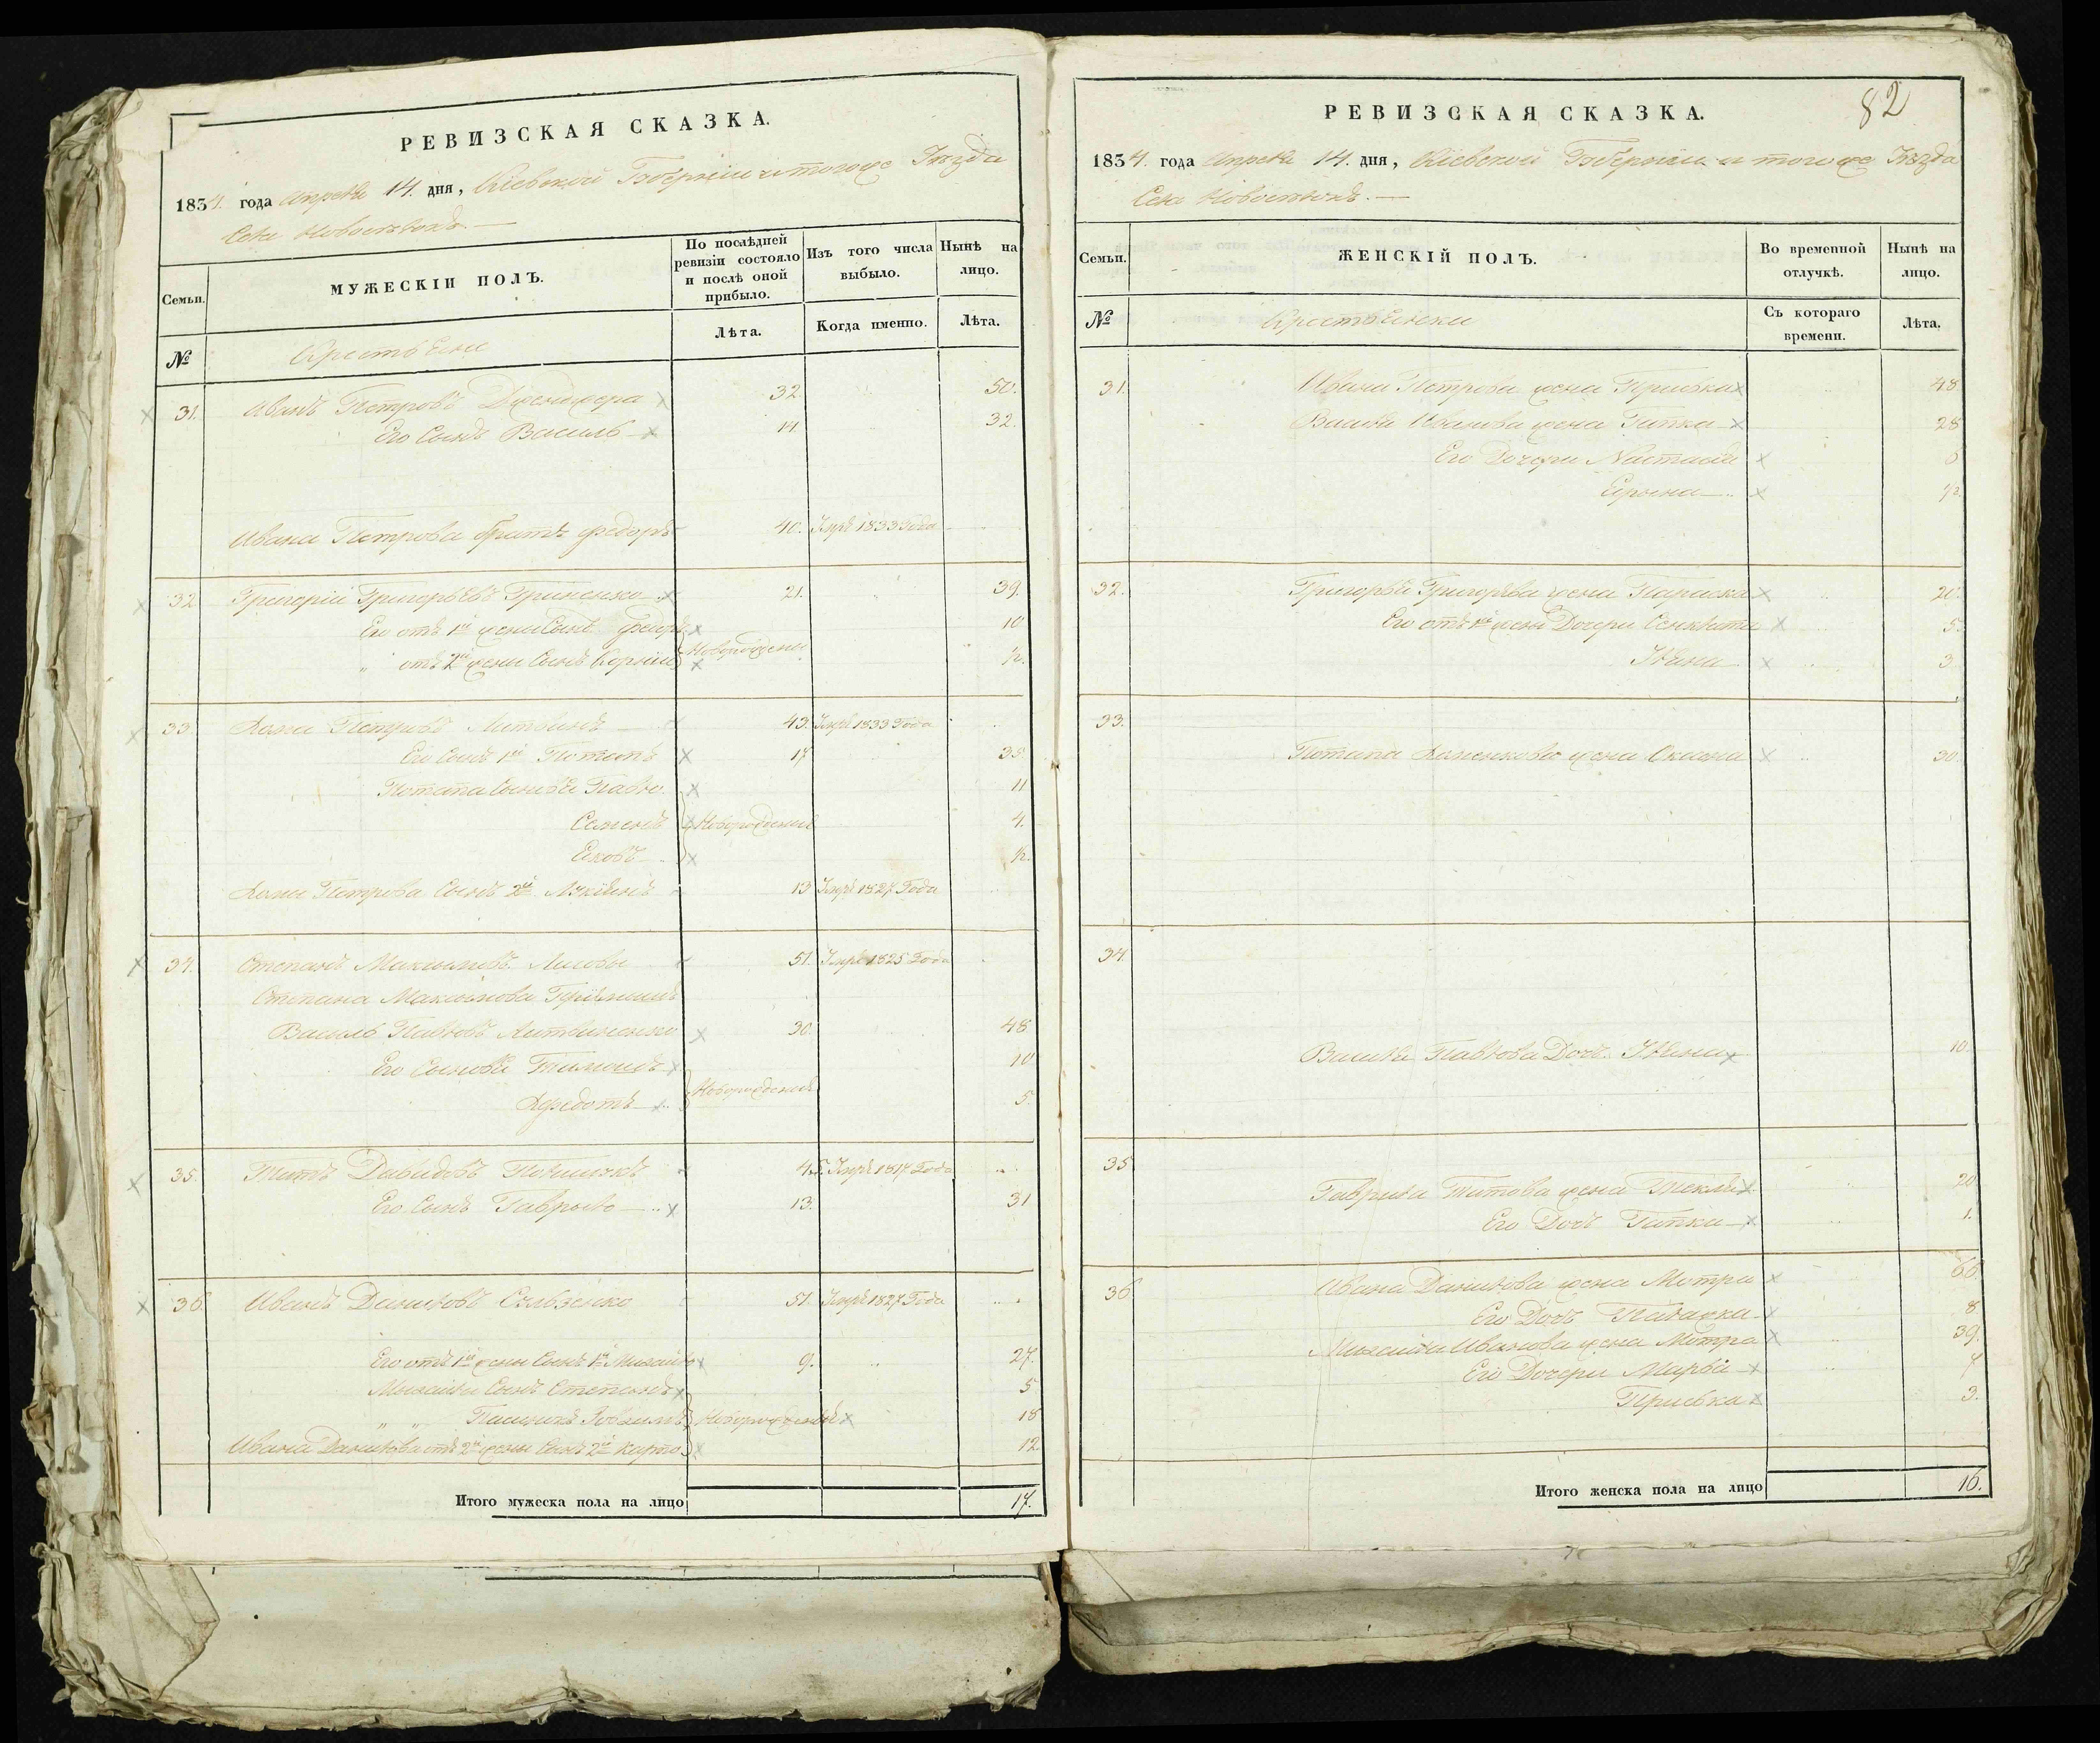 РЕВИЗСКАЯ СКАЗКА.
1834. года Апреля 14. дня, Кіевской Губерніи и тогоже Уѣзда
Села Новоселокъ. —
Семьи.
МУЖЕСКІЙ ПОЛЪ.
По послѣдней ревизіи состояло и послѣ оной прибыло.
Изъ того числа выбыло.
Нынѣ на лицо.
№
Крестьяне
Лѣта.
Когда именно.
Лѣта.
31. Иванъ Петровъ 32. 50.
Его Сынъ Василь 14. 32.
Ивана Петрова братъ Федоръ 40. Умре 1833 Года
32 Григорій Григорьевъ Гриненко 21. 39.
Его отъ 1й жены Сынъ Федоръ 10
" отъ 2й жены Сынъ Корній Новорожденны ½.
33. Петровъ Литвинъ 43. Умре 1833 Года
Его Сынъ 1й Потапъ 17 35
Потапа Сыновья Павло 11
Семенъ Новорожденные 4.
Яковъ ½.
Петрова Сынъ 2й Лукіянъ 13 Умре 1827 Года
34. Степанъ Максимовъ 51. Умре 1825 Года
Степана Максимова
Василь Павловъ Литвиненко 30. 48
Его Сыновья Тимошъ 10
Новорожденные 5.
35. Титъ Давидовъ 45. Умре 1817 Года
Его Сынъ Гаврыло 13. 31
36. Иванъ Даниловъ 51. Умре 1827 Года
Его отъ 1й жены Сынъ 1й Михайло 9. 27.
Михайлы Сынъ Степанъ 5
" " Новорожденные 18
Ивана Данилова отъ 2й жены Сынъ 2й Карпо 12
Итого мужеска пола на лицо 17.
82
РЕВИЗСКАЯ СКАЗКА.
1834. года Апреля 14. дня, Кіевской Губерніи и тогоже Уѣзда
Села Новоселокъ. —
Семьи.
ЖЕНСКІЙ ПОЛЪ.
Во временной отлучкѣ.
Нынѣ на лицо.
№
Крестьянки
Съ котораго времени.
Лѣта.
31. Ивана Петрова жена Приська 48
Василя Иванова жена Гапка 28
Его Дочери Настасія 6
½
32. Григорья Григорьева жена Параска 20.
Его отъ 1й жены Дочери 5.
Уляна 3
33.
Потапа жена Оксана 30.
34
Василя Павлова Дочь Уляна 10.
35
Гаврила Титова жена Текля 20
Его Дочь Гапка 1.
36 Ивана Данилова жена Мотря 60.
Его Дочь Палажка 8
Михайла Иванова жена Мотря 39.
Его Дочери Марья 7
Приська 3.
Итого женска пола на лицо 16.